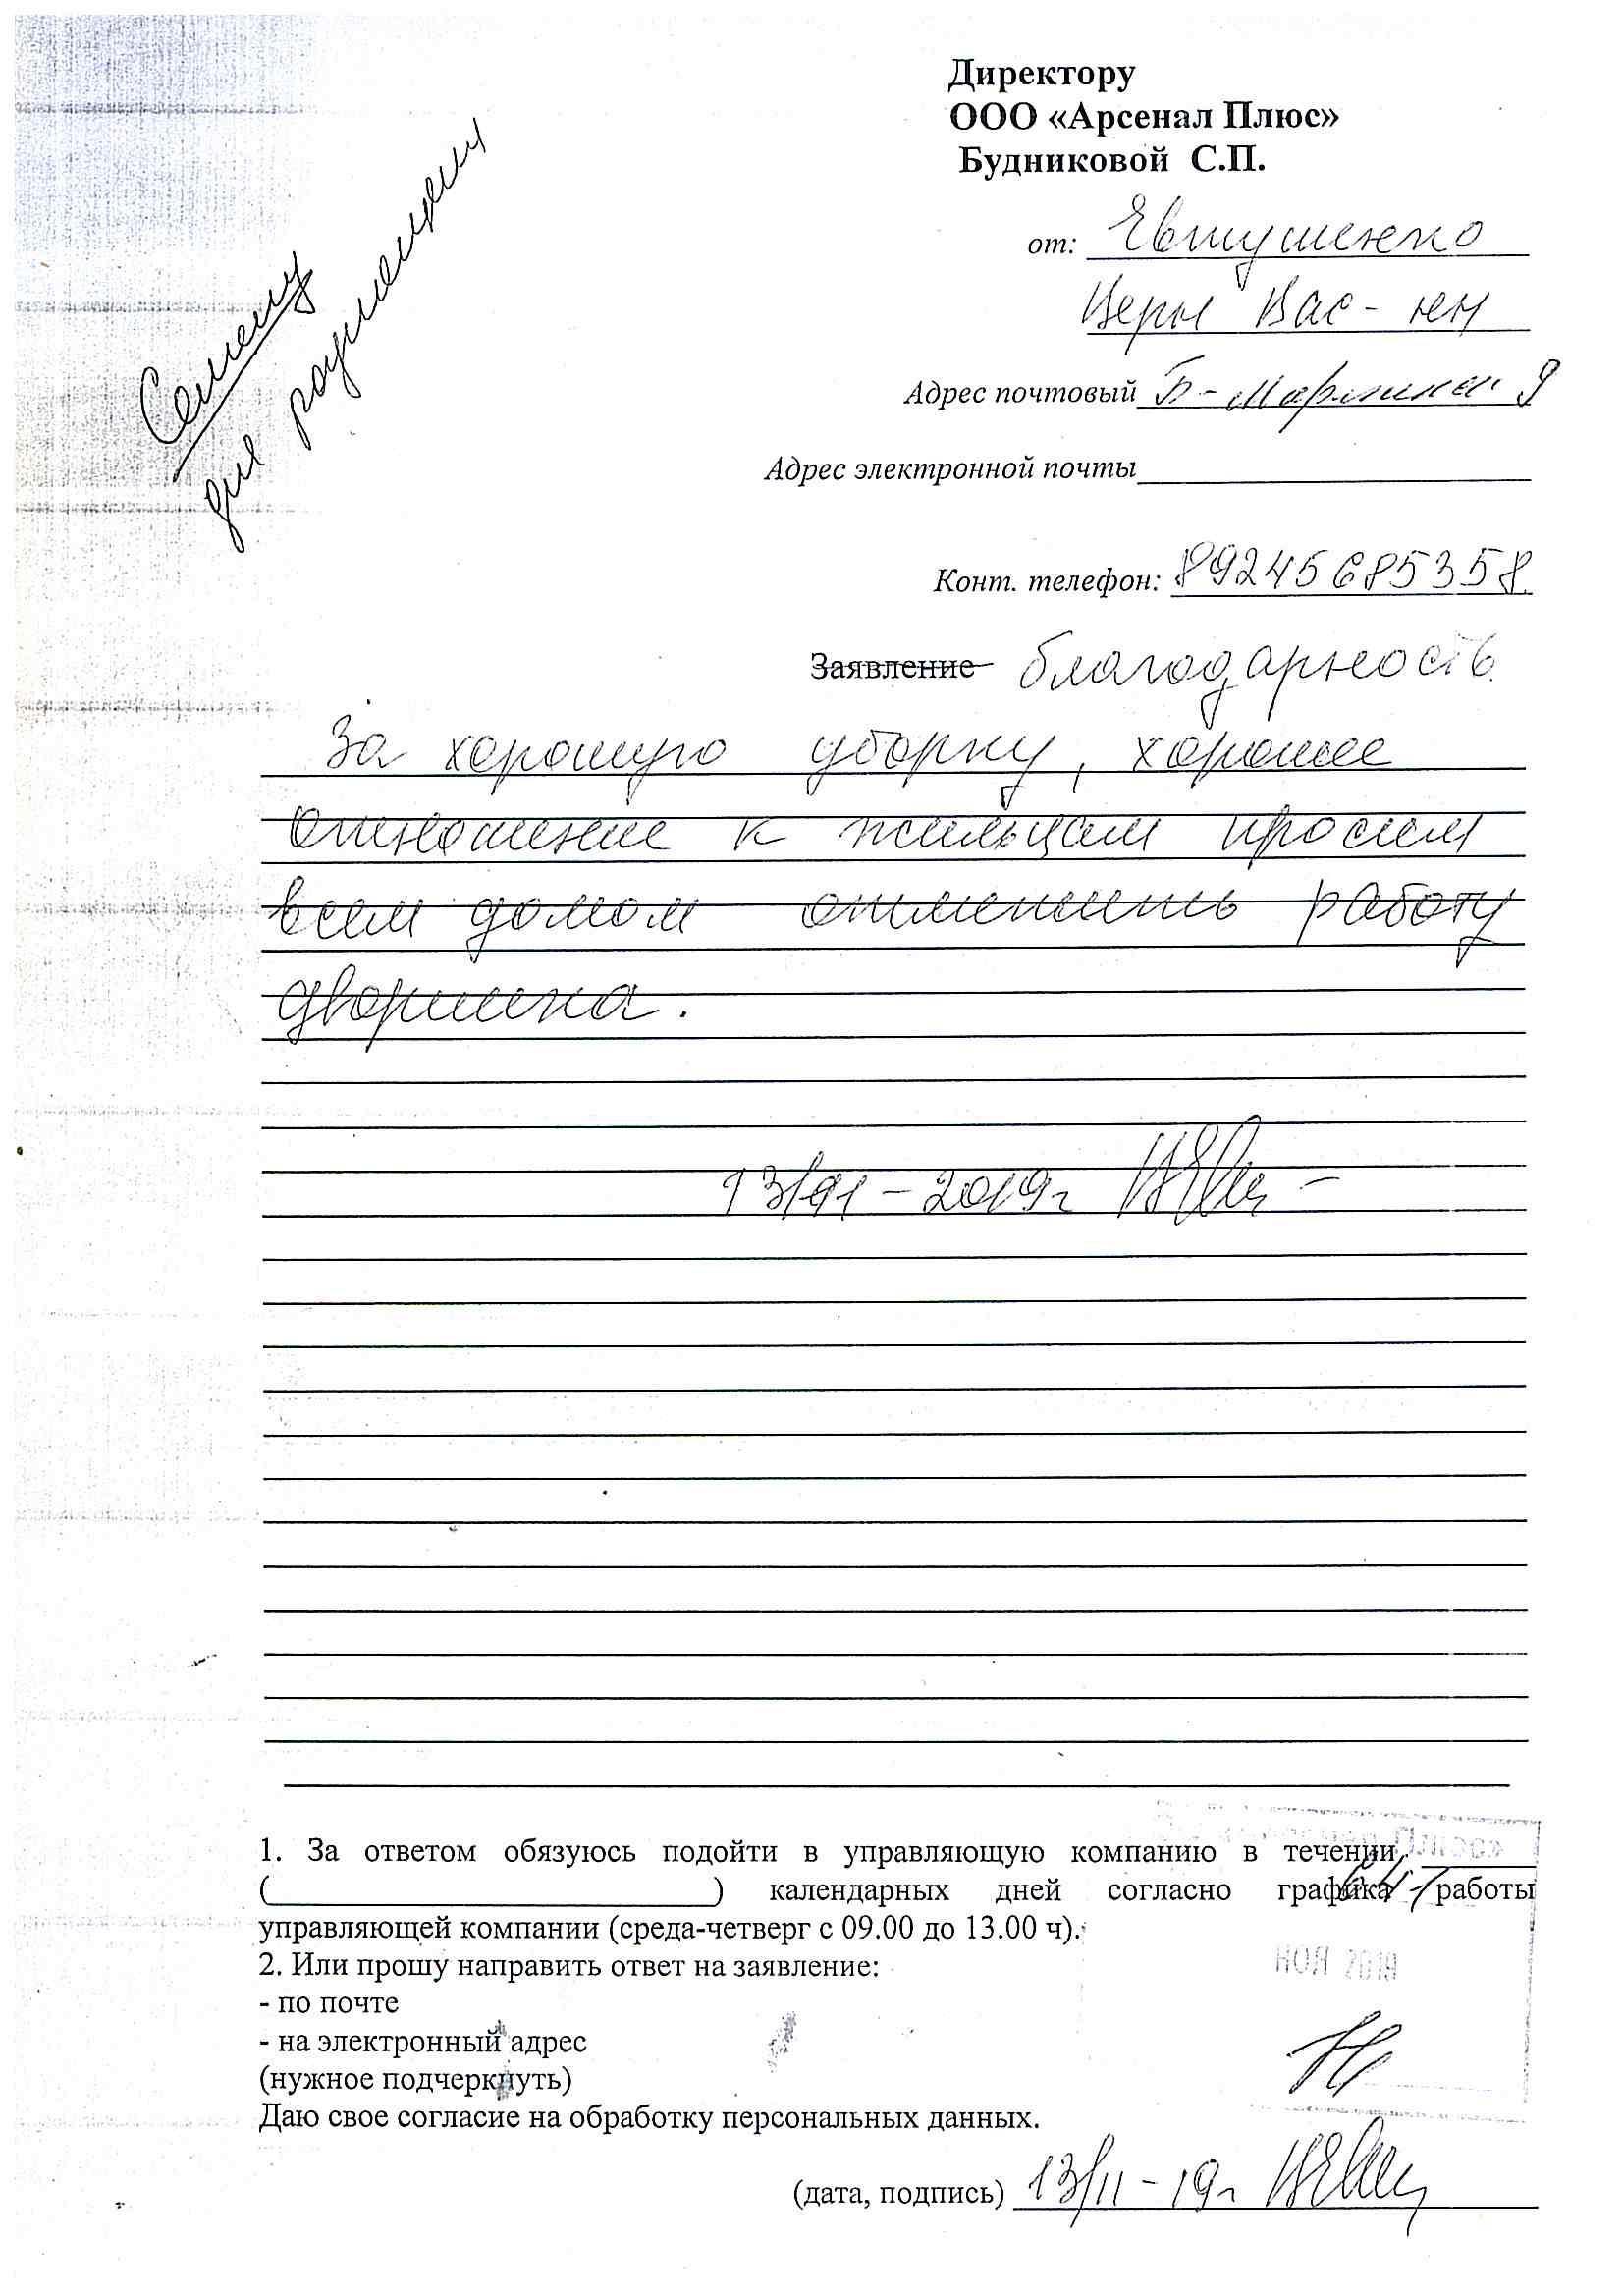 Директору
ООО «Арсенал Плюс»
Будниковой С.П.
Семену
для размещен
от: Евтушенко
Веры Вас-ны
Адрес почтовый Б- 9
Адрес электронной почты
Конт. телефон: 89245685358
Заявление благодарность
За хорошую уборку, хорошее
отношение к жильцам просим
всем домом отметить работу
дворника.
13/11-2019г
1. За ответом обязуюсь подойти в управляющую компанию в течении
( ) календарных дней согласно графика работы
управляющей компании (среда-четверг с 09.00 до 13.00 ч).
2. Или прошу направить ответ на заявление:
- по почте
- на электронный адрес
(нужное подчеркнуть)
Даю свое согласие на обработку персональных данных.
НОЯ 2019
(дата, подпись) 13/11-19г